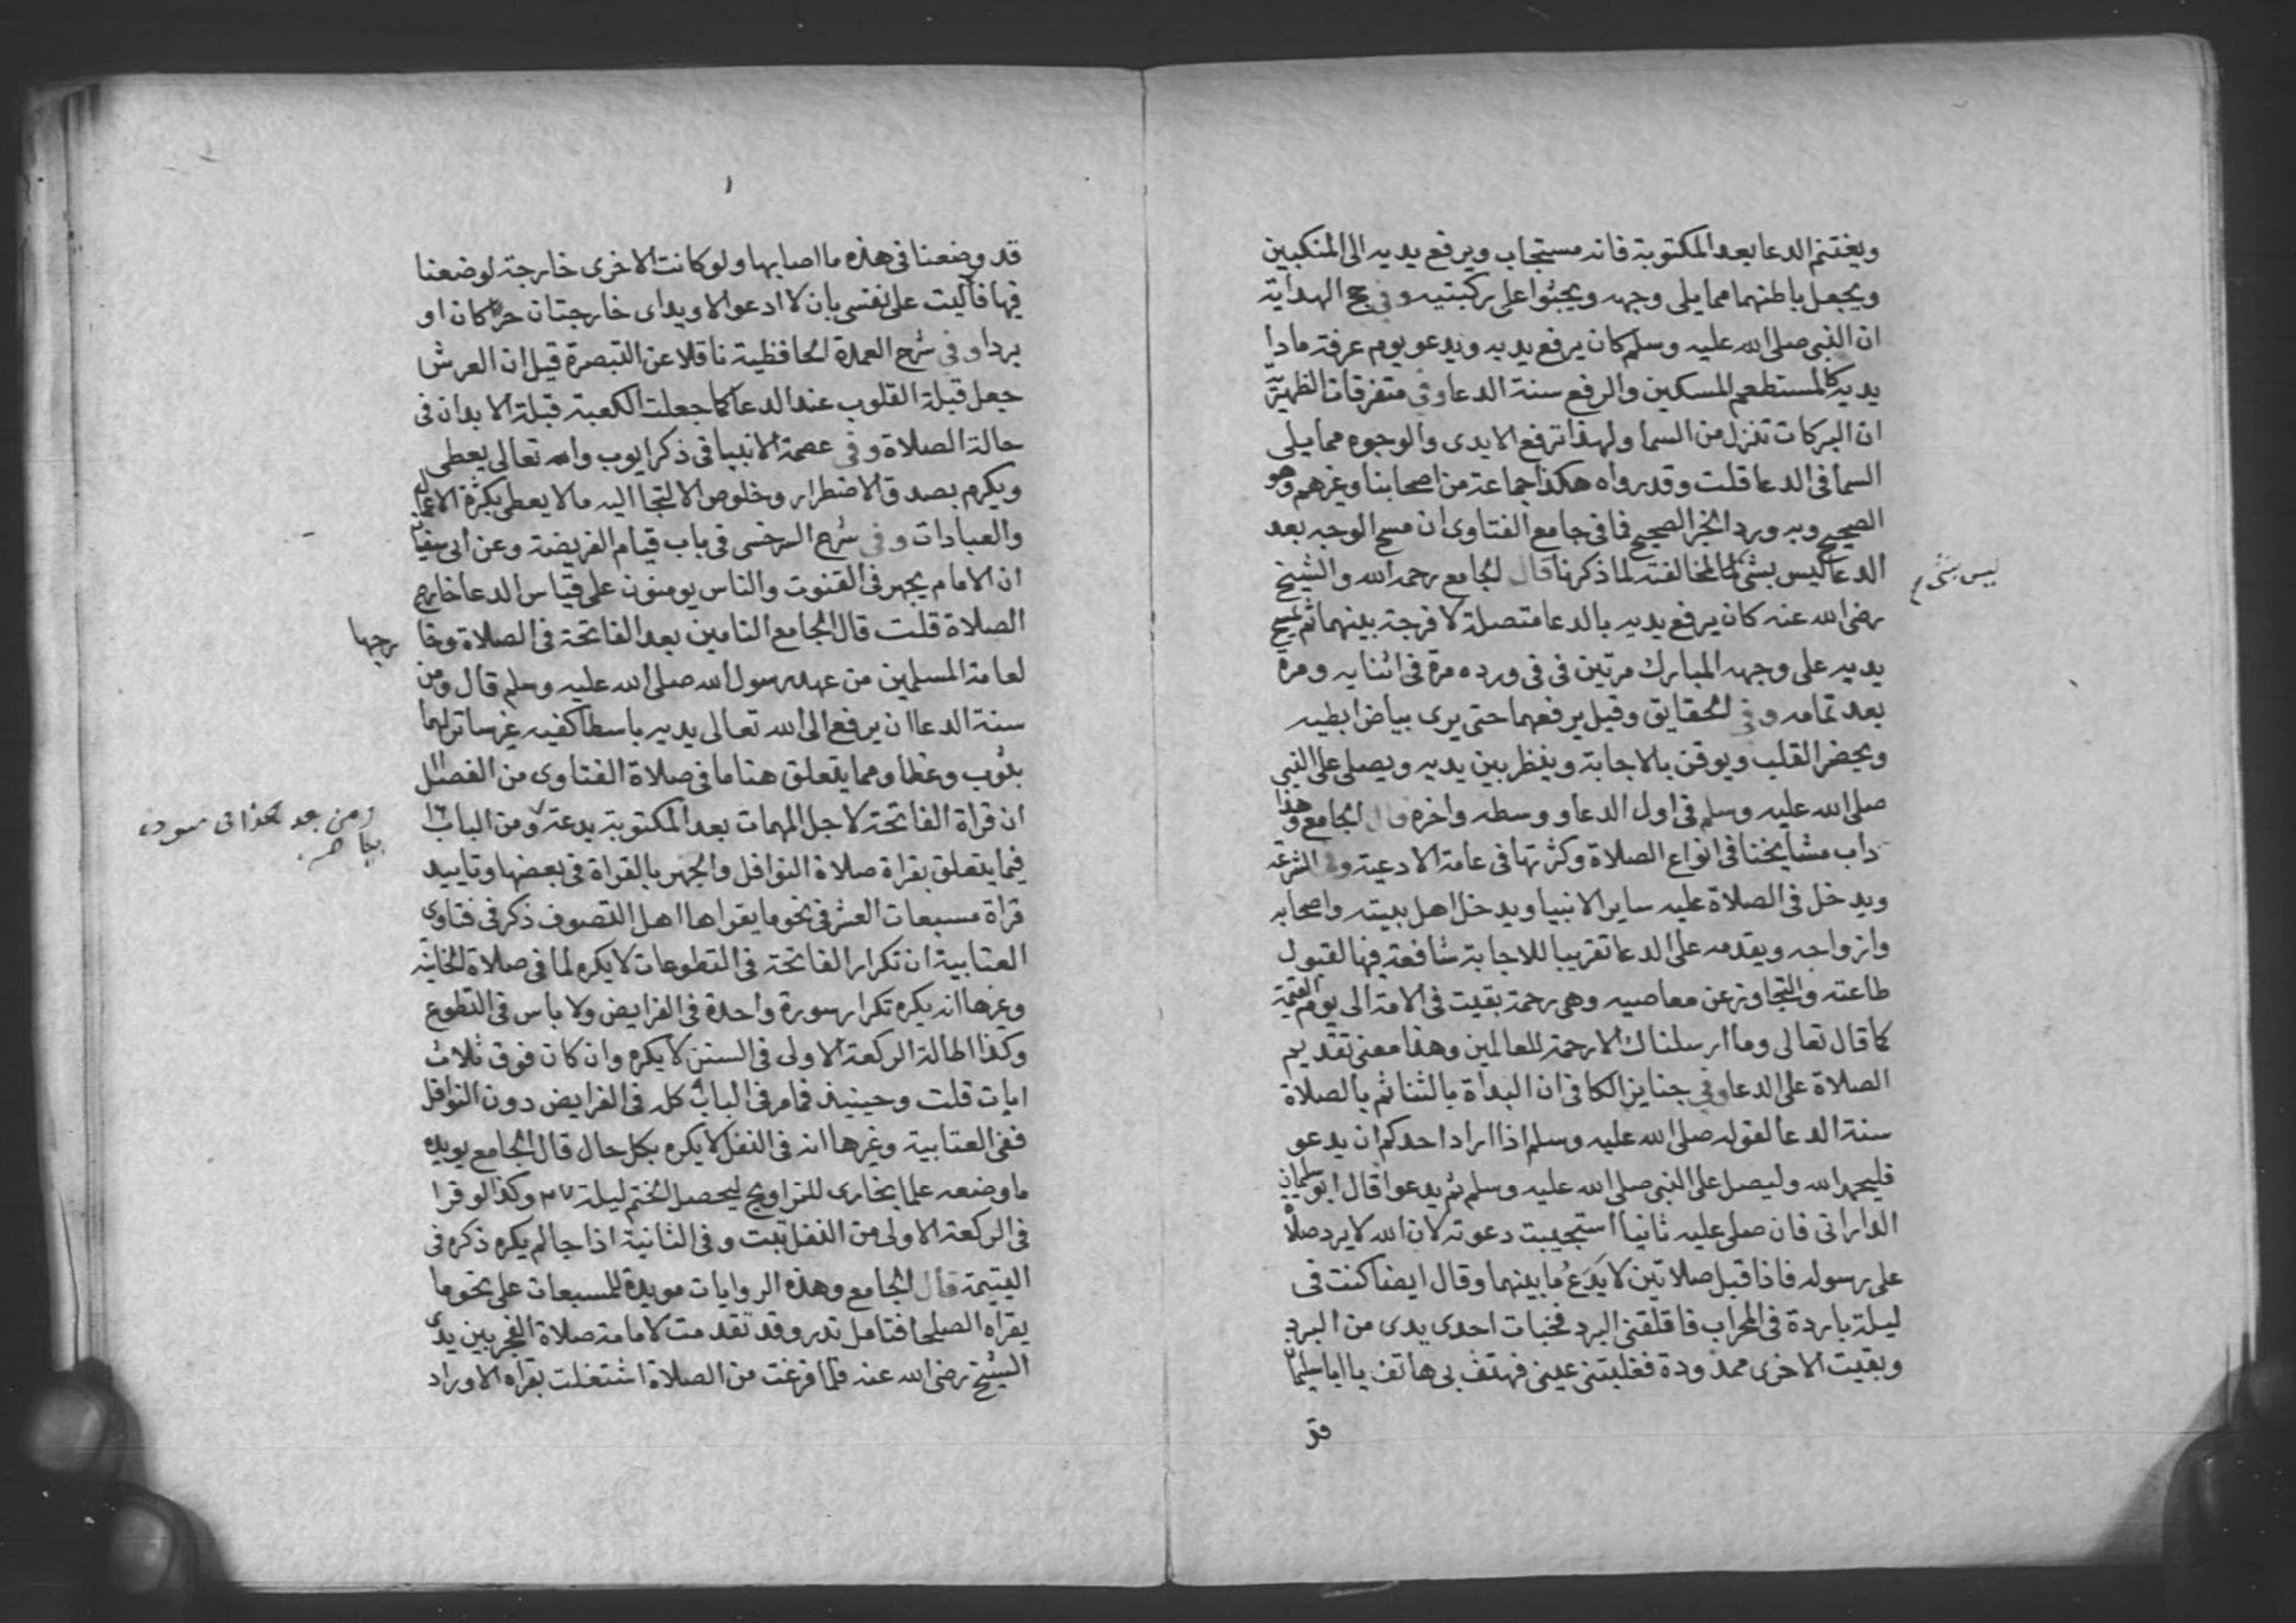 ويغتنم الدعا بعد المكتوبة فانه مستجاب ويرفع يديه الى المنكبين
ويجعل باطنهما مما يلى وجهه ويجثوا على ركبتيه وفى حج الهداية
ان النبى صلى الله عليه وسلم كان يرفع يديه ويدعو يوم عرفة مادا
يديه كالمستطعم المسكين والرفع سنة الدعا وفى متفرقات الظهيرية
ان البركات تنزل من السما ولهذا ترفع الايدى والوجوه مما يلى
السما فى الدعا قلت وقد رواه هكذا جماعة من اصحابنا وغيرهم وهو
الصحيح وبه ورد الخبر الصحيح فما فى جامع الفتاوى ان مسح الوجه بعد
الدعا ليس بشئ لمخالفته لما ذكرنا قال الجامع رحمه الله والشيخ
ليس بشئ م
رضى الله عنه كان يرفع يديه بالدعا متصلة لا فرجة بينهما ثم يمسح
يديه على وجهه المبارك مرتين فى فى ورده مرة فى اثنايه ومرة
بعد تمامه وفى الحقايق وقيل يرفعهما حتى يرى بياض ابطيه
ويحضر القلب ويوقن بالاجابة وينظر بين يديه ويصلى على النبى
صلى الله عليه وسلم فى اول الدعا ووسطه واخره قال الجامع وهذا
داب مشايخنا فى انواع الصلاة وكثرتها فى عامة الادعية وفى الشرعة
ويدخل فى الصلاة عليه ساير الانبيا ويدخل اهل بيته واصحابه
وازواجه ويقدمه على الدعا تقريبا للاجابة شافعة فيها لقبول
طاعته والتجاوز عن معاصيه وهى رحمة بقيت فى الامة الى يوم القيمة
كما قال تعالى وما ارسلناك الا رحمة للعالمين وهذا معنى تقديم
الصلاة على الدعا وفى جنايز الكافى ان البداة بالثنا ثم بالصلاة
سنة الدعا لقوله صلى الله عليه وسلم اذا اراد احدكم ان يدعو
فليحمد الله وليصل على النبى صلى الله عليه وسلم ثم يدعوا قال ابو سليمان
الدارانى فان صلى عليه ثانيا استجيبت دعوته لان الله لا يرد صلاة
على رسوله فاذا قبل صلاتين لا يَدَعُ ما بينهما وقال ايضا كنت فى
ليلة باردة فى المحراب فاقلقنى البرد فخبات احدى يدى من البرد
وبقيت الاخرى ممدودة فغلبتنى عينى فهتف بى هاتف يا ابا سليمان
قد
قد وضعنا فى هذه ما اصابها ولو كانت الاخرى خارجة لوضعنا
فيها فآليت على نفسى بان لا ادعو الا ويداى خارجتان حرا كان او
بردا وفى شرح العمدة الحافظية ناقلا عن التبصرة قيل ان العرش
جعل قبلة القلوب عند الدعا كما جعلت الكعبة قبلة الابدان فى
حالة الصلاة وفى عصمة الانبيا فى ذكر ايوب والله تعالى يعطى
ويكرم بصدق الاضطرار وخلوص الالتجا اليه ما لا يعطى بكثرة الاعمال
والعبادات وفى شرح السرخسى فى باب قيام الفريضة وعن ابى سفيان
ان الامام يجهر فى القنوت والناس يومنون على قياس الدعا خارج
الصلاة قلت قال الجامع التامين بعد الفاتحة فى الصلاة وخا رجها
لعامة المسلمين من عهد رسول الله صلى الله عليه وسلم قال ومن
سنة الدعا ان يرفع الى الله تعالى يديه باسطا كفيه غير ساترلهما
بثوب وغطا ومما يتعلق هنا ما فى صلاة الفتاوى من الفصل
ان قراة الفاتحة لاجل المهمات بعد المكتوبة بدعة ومن الباب ١٢
ومن بعد هكذا فى مسودة
فيما يتعلق بقراة صلاة النوافل والجهر بالقراة فى بعضها وتاييد
قراة مسبعات العشر فى نحو ما يقراها اهل التصوف ذكر فى فتاوى
العتابية ان تكرار الفاتحة فى التطوعات لا يكره لما فى صلاة الخانية
وغيرها انه يكره تكرار سورة واحدة فى الفرايض ولا باس فى التطوع
وكذا اطالة الركعة الاولى فى السنن لا يكره وان كان فوق ثلاث
ايات قلت وحينيذ فما مر فى الباب كله فى الفرايض دون النوافل
ففى العتابية وغيرها انه فى النفل لا يكره بكل حال قال الجامع يويده
ما وضعه علما بخارى للتراويح ليحصل الختم ليلة ٢٧ وكذا لو قرا
فى الركعة الاولى من النفل تبت وفى الثانية اذا جا لم يكره ذكره فى
اليتيمة قال الجامع وهذه الروايات مويدة للمسبعات على نحو ما
يقراه الصلحا فتامل تدر وقد تقدمت لامامة صلاة الفجر بين يدى
الشيخ رضى الله عنه فلما فرغت من الصلاة اشتغلت بقراة الاوراد